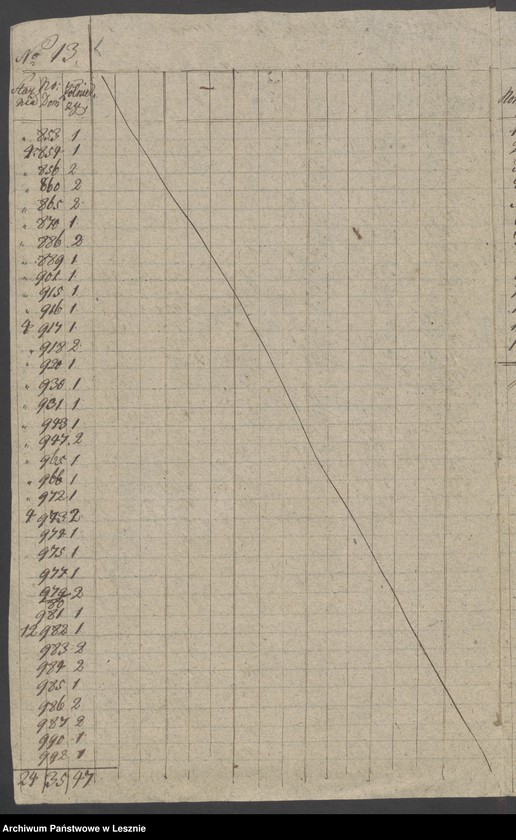 No 13.
Stay No: Żołnie
nia Dom rzy
" 853 1
4 854 1
" 856 2
" 860 2
" 865 2
" 870 1
" 886 2
" 889 1
" 901 1
" 915 1
" 916 1
4 917 1
" 918 2
" 920 1
" 930 1
" 931 1
" 943 1
" 947 2
" 965 1
" 966 1
" 972 1
4 973 2
974 1
975 1
977 1
979 2
80
981 1
12 982 1
983 2
984 2
985 1
986 2
987 2
990 1
992 1
24 35 47
Archiwum Państwowe w Lesznie